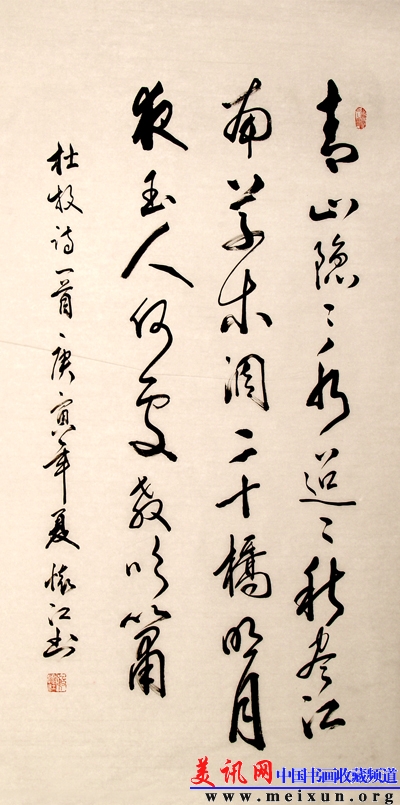 青山隐々水迢々秋尽江
南草木凋二十橋明月
夜玉人何处教吹箫
杜牧诗一首庚寅年夏懷江书
美讯网 中国书画收藏频道
www.meixun.org